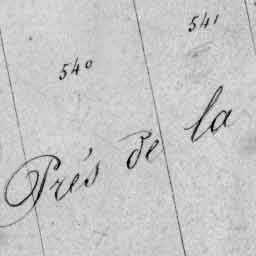 541
540
Prés de la